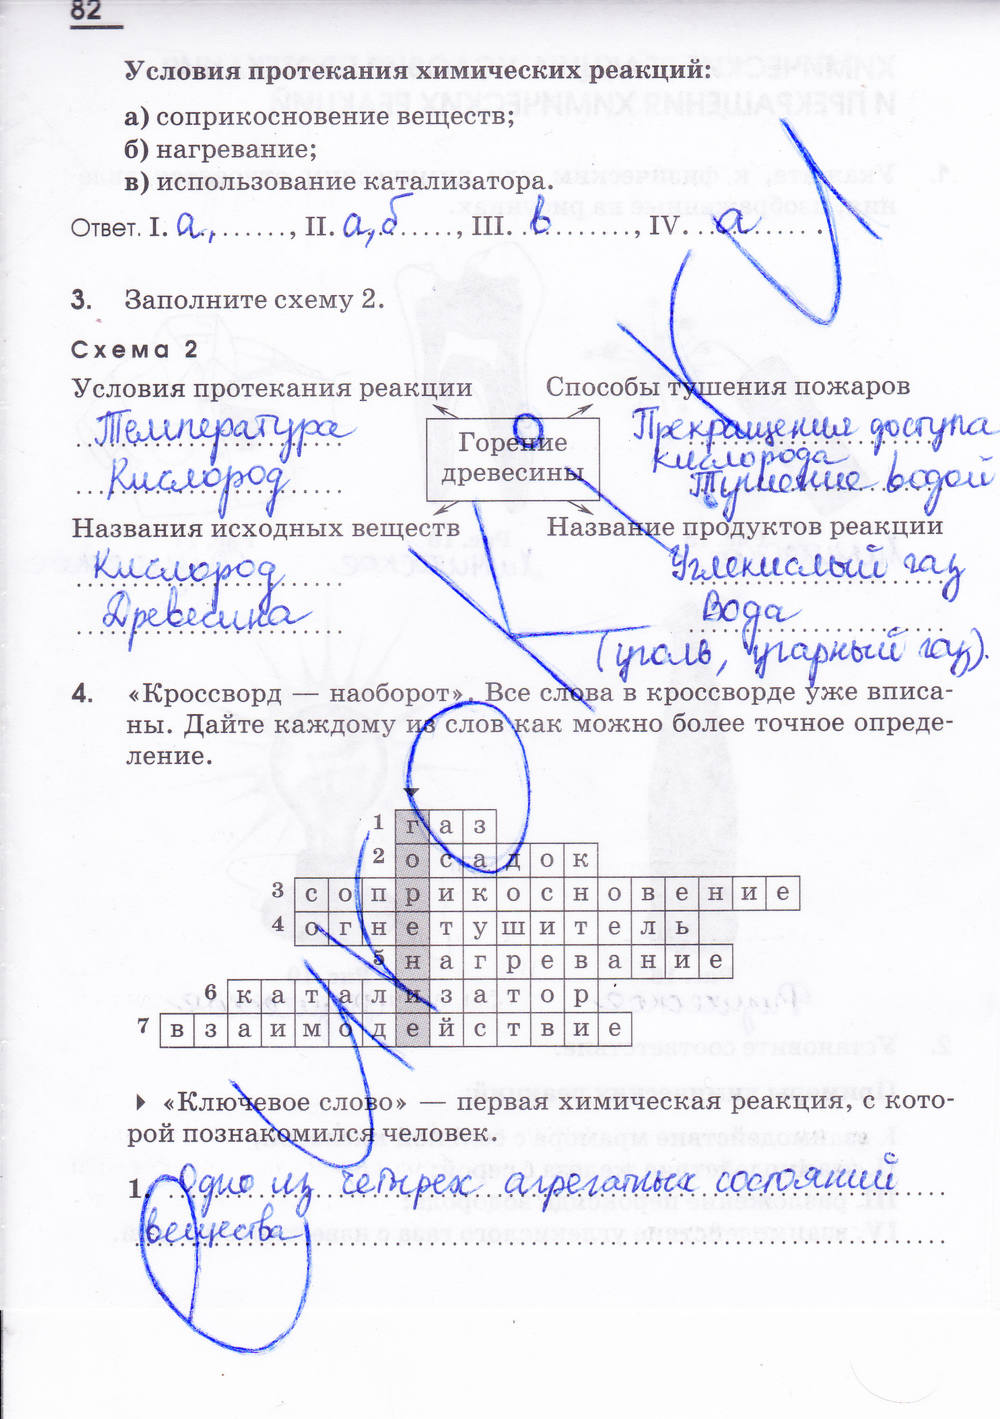 82
Условия протекания химических реакций:
а) соприкосновение веществ;
б) нагревание;
в) использование катализатора.
Ответ. I. а, , II. а, б , III. в , IV. а .
3. Заполните схему 2.
Схема 2
Условия протекания реакции
Способы тушения пожаров
Температура
Кислород
Горение
древесины
Прекращения доступа
кислорода
Тушение водой
Названия исходных веществ
Название продуктов реакции
Кислород
Древесина
Углекислый газ
Вода
(уголь, угарный газ).
4. «Кроссворд — наоборот». Все слова в кроссворде уже вписа-
ны. Дайте каждому из слов как можно более точное опреде-
ление.
1 газ
2 осадок
3 соприкосновение
4 огнетушитель
5 нагревание
6 катализатор
7 взаимодействие
«Ключевое слово» — первая химическая реакция, с кото-
рой познакомился человек.
1. Одно из четырех агрегатных состояний
вещества